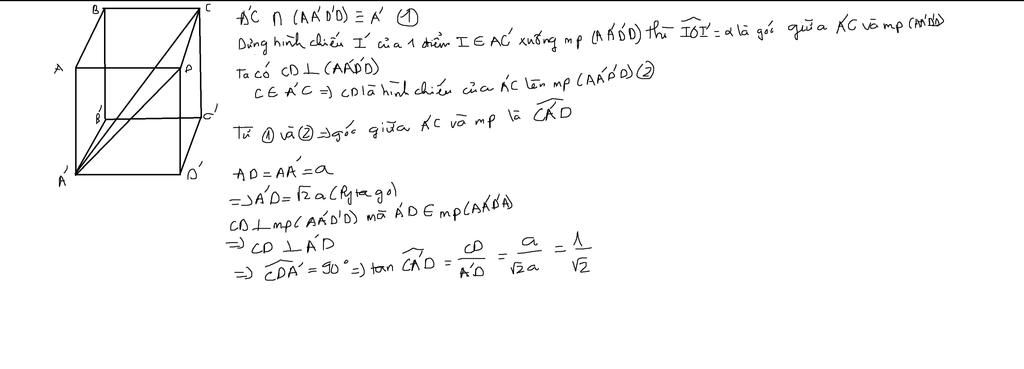 B C
A'C ∩ (AA'D'D) ≡ A' (1)
Dừng hình chiếu I' của 1 điểm I ∈ A'C xuống mp (AA'D'D) thì IOI' = α là góc giữa A'C và mp (AA'D'D)
A D
Ta có CD ⊥ (AA'D'D)
C ∈ A'C => CD là hình chiếu của A'C lên mp (AA'D'D) (2)
B' C'
Từ (1) và (2) => góc giữa A'C và mp là CA'D
A' D'
AD = AA' = a
=> A'D = √2 a (Pytago)
CD ⊥ mp (AA'D'D) mà A'D ∈ mp (AA'D'D)
=> CD ⊥ A'D
=> CDA' = 90° => tan CA'D = CD/A'D = a/√2a = 1/√2